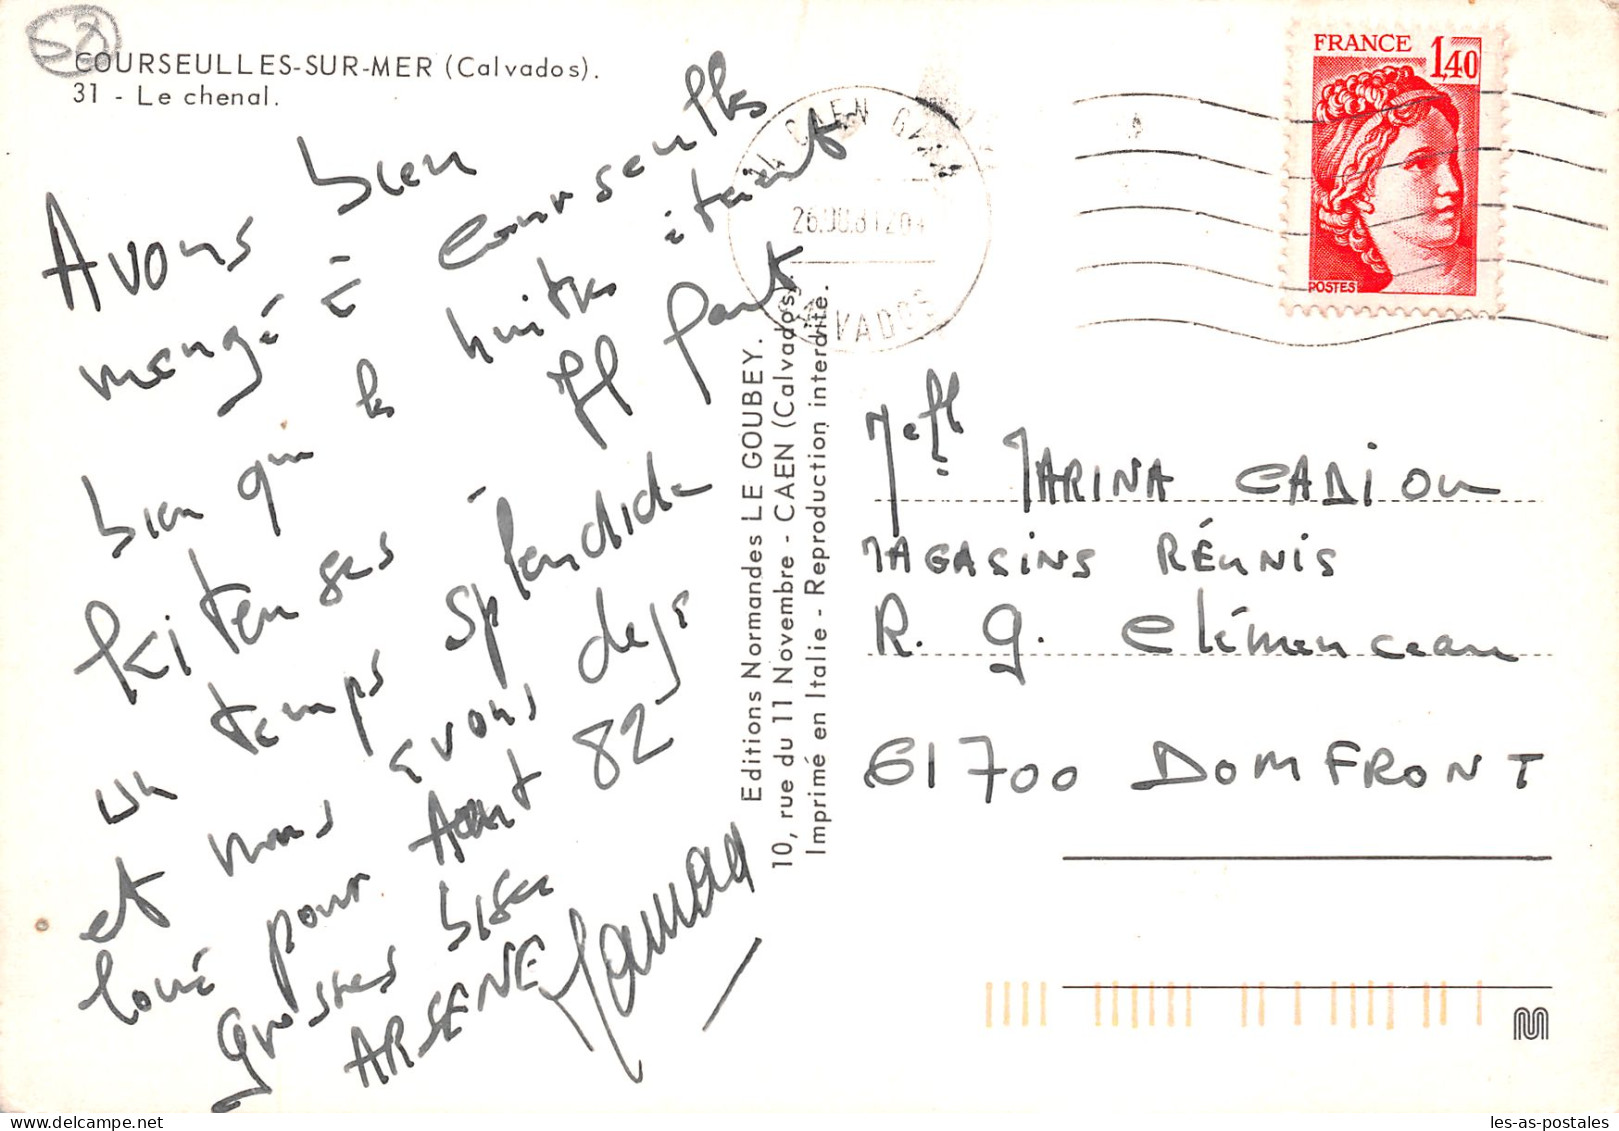 COURSEULLES-SUR-MER (Calvados).
31 - Le chenal.
Avons bien
mangé à Courseulles
bien que les huitres étaient
Il fait
un temps splendide
et nous avons deja
loué pour Aout 82
grosses bises
ARSENE
Editions Normandes LE GOUBEY.
10, rue du 11 Novembre - CAEN (Calvados)
Imprimé en Italie - Reproduction interdite.
14 CAEN GARE
CALVADOS
FRANCE
1,40
POSTES
MARINA CADIOU
MAGASINS RÉUNIS
R. G. Clémenceau
61700 DOMFRONT
les-as-postales